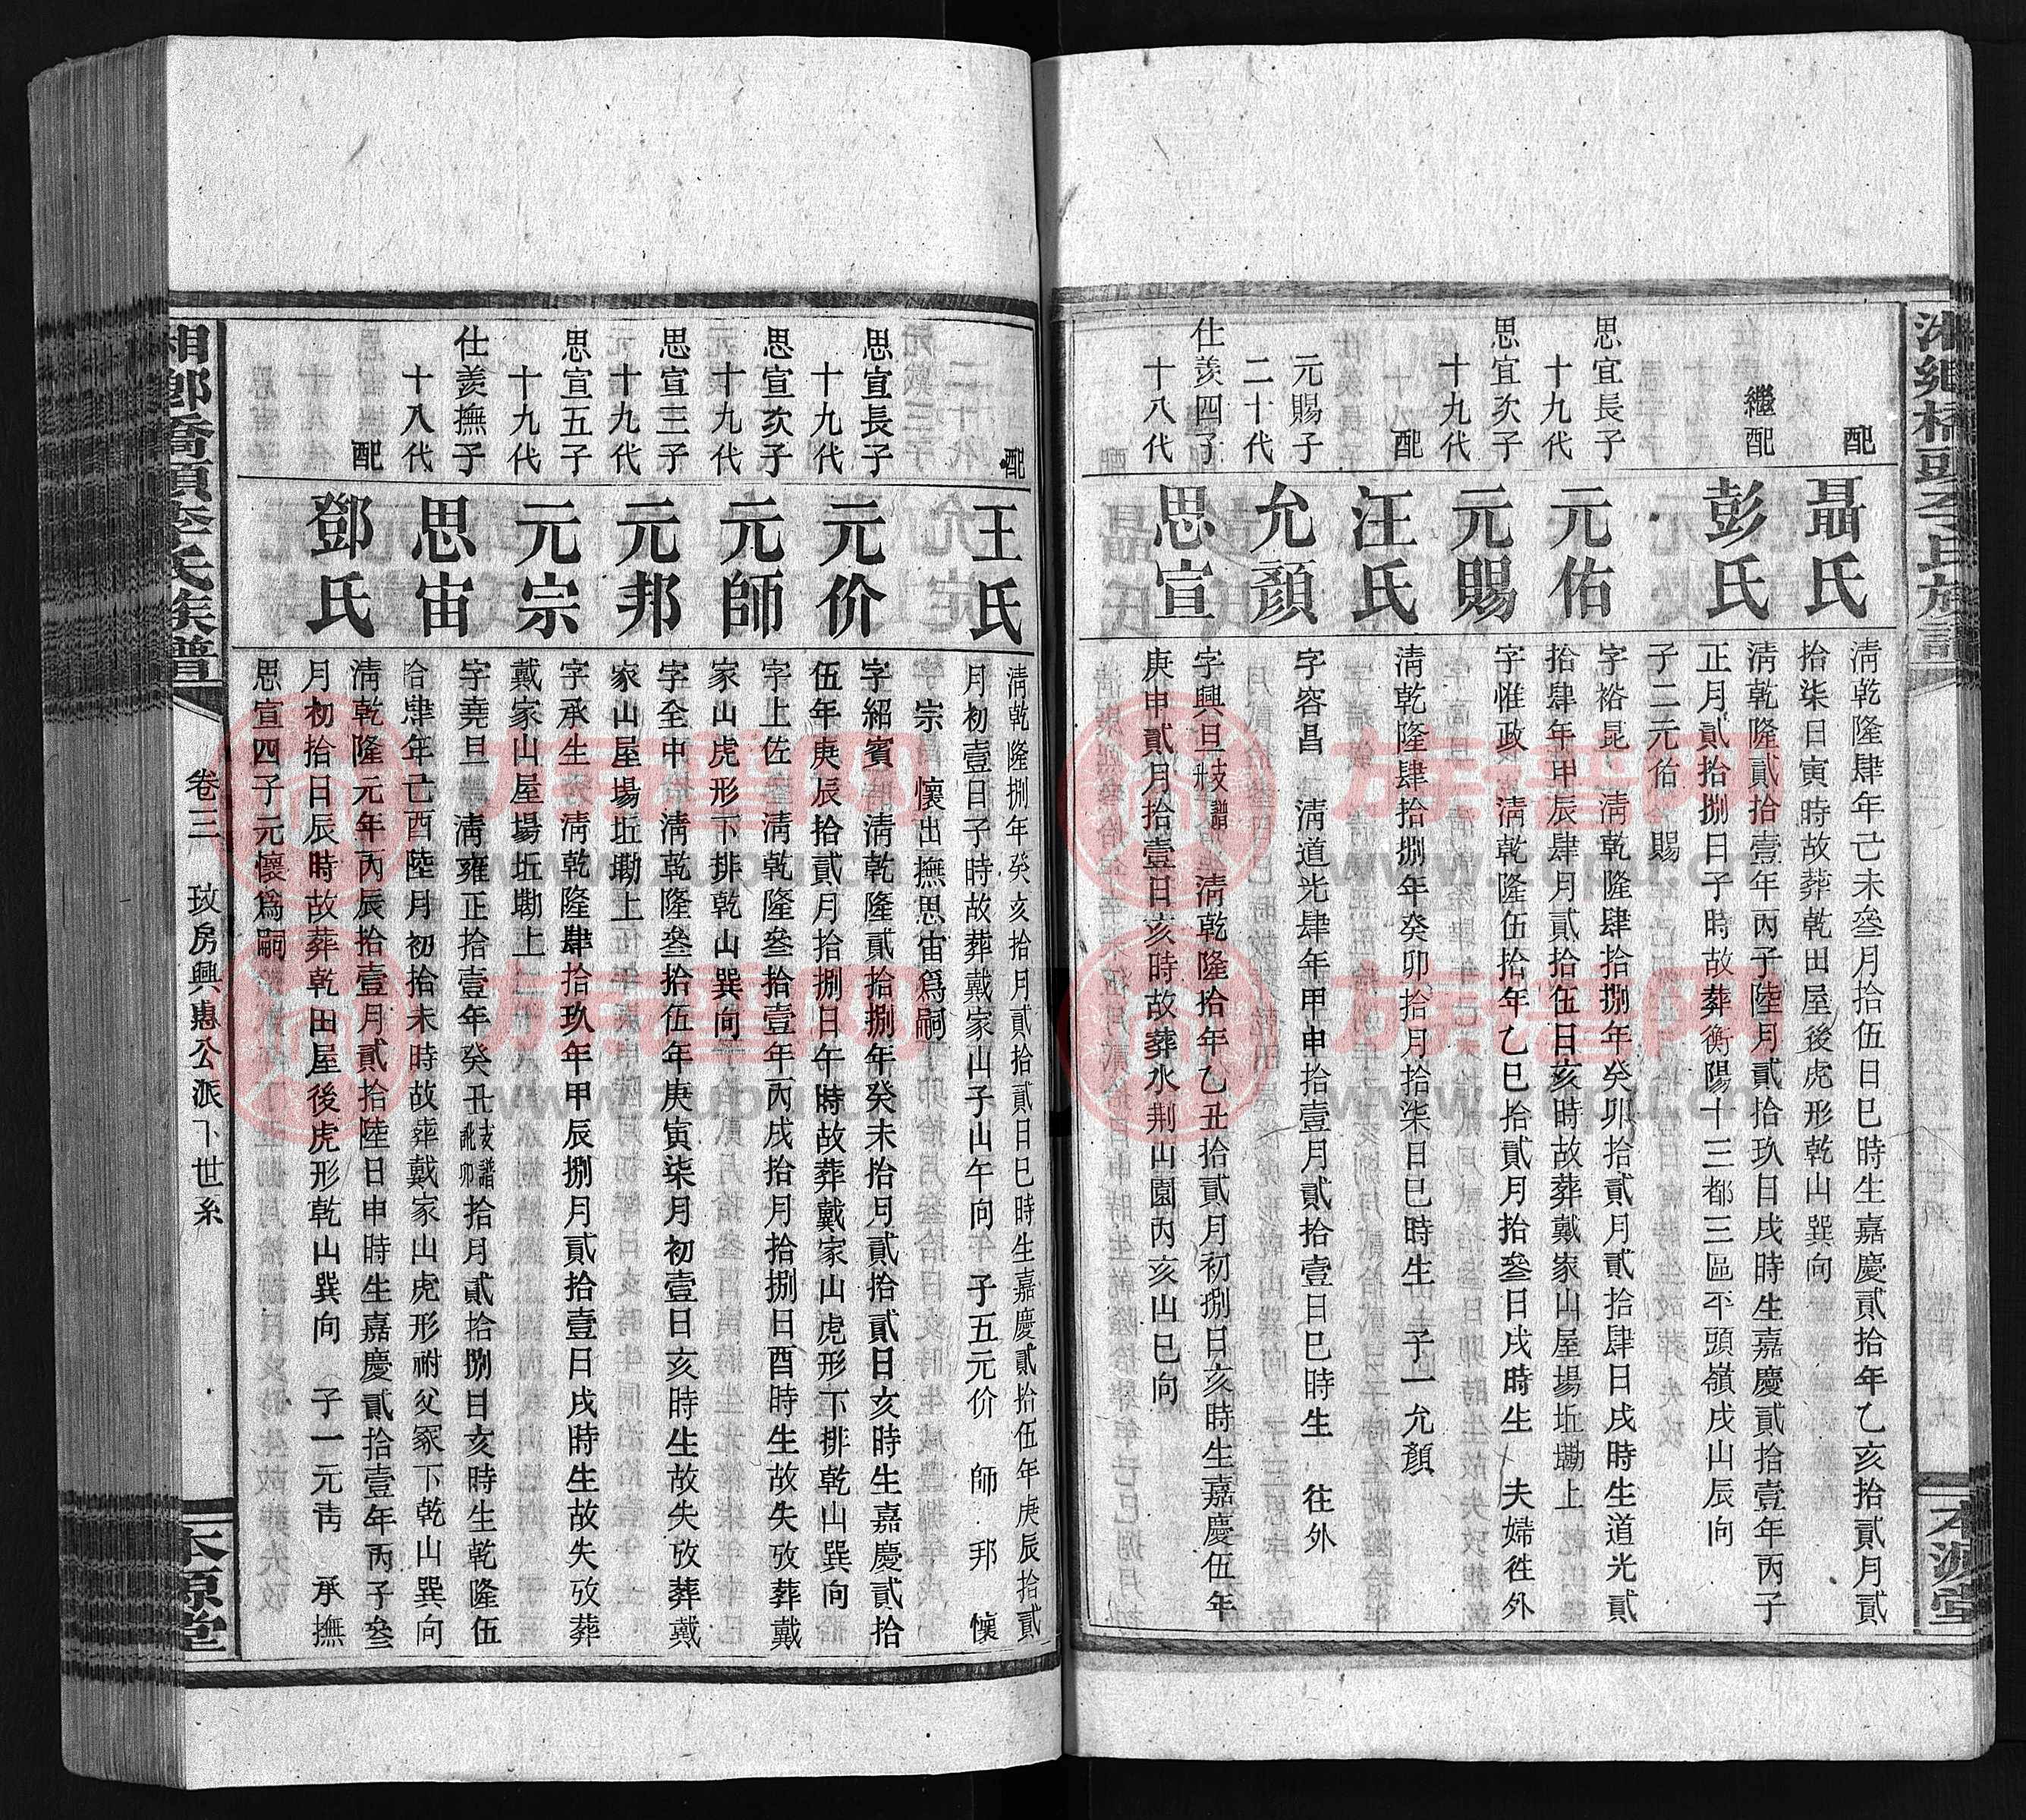 湘鄉橋頭李氏族譜
本源堂
配
聶氏
清乾隆肆年己未叄月拾伍日巳時生嘉慶貳拾年乙亥拾貳月貳
拾柒日寅時故葬乾田屋後虎形乾山巽向
繼配
彭氏
清乾隆貳拾壹年丙子陸月貳拾玖日戌時生嘉慶貳拾壹年丙子
正月貳拾捌日子時故葬衡陽十三都三區平頭嶺戌山辰向
子二元佑 賜
思宜長子
十九代
元佑
字裕昆 清乾隆肆拾捌年癸卯拾貳月貳拾肆日戌時生道光貳
拾肆年甲辰肆月貳拾伍日亥時故葬戴家山屋場坵墈上
思宜次子
十九代
元賜
字惟政 清乾隆伍拾年乙巳拾貳月拾叄日戌時生 夫婦徃外
配
汪氏
清乾隆肆拾捌年癸卯拾月拾柒日巳時生 子一允顏
元賜子
二十代
允顏
字容昌 清道光肆年甲申拾壹月貳拾壹日巳時生 徃外
仕羨四子
十八代
思宣
字興旦 清乾隆拾年乙丑拾貳月初捌日亥時生嘉慶伍年
庚申貳月拾壹日亥時故葬水荆山園丙亥山巳向
配
王氏
清乾隆捌年癸亥拾月貳拾貳日巳時生嘉慶貳拾伍年庚辰拾貳
月初壹日子時故葬戴家山子山午向 子五元价 師 邦 懷
宗 懷出撫思宙爲嗣
思宣長子
十九代
元价
字紹賓 清乾隆貳拾捌年癸未拾月貳拾貳日亥時生嘉慶貳拾
伍年庚辰拾貳月拾捌日午時故葬戴家山虎形下排乾山巽向
思宣次子
十九代
元師
字上佐 清乾隆叄拾壹年丙戌拾月拾捌日酉時生故失攷葬戴
家山虎形下排乾山巽向
思宣三子
十九代
元邦
字全中 清乾隆叄拾伍年庚寅柒月初壹日亥時生故失攷葬戴
家山屋場坵墈上
思宣五子
十九代
元宗
字承生 清乾隆肆拾玖年甲辰捌月貳拾壹日戌時生故失攷葬
戴家山屋場坵墈上
仕羨撫子
十八代
思宙
字堯旦 清雍正拾壹年癸丑支譜訛卯拾月貳拾捌日亥時生乾隆伍
拾肆年己酉陸月初拾未時故葬戴家山虎形祔父冢下乾山巽向
配
鄧氏
清乾隆元年丙辰拾壹月貳拾陸日申時生嘉慶貳拾壹年丙子叄
月初拾日辰時故葬乾田屋後虎形乾山巽向 子一元靑 承撫
思宣四子元懷爲嗣
湘鄉橋頭李氏族譜
卷三 玫房興惠公派下世系
本源堂
族譜网
www.zupu.cn
族譜网
www.zupu.cn
族譜网
www.zupu.cn
族譜网
www.zupu.cn